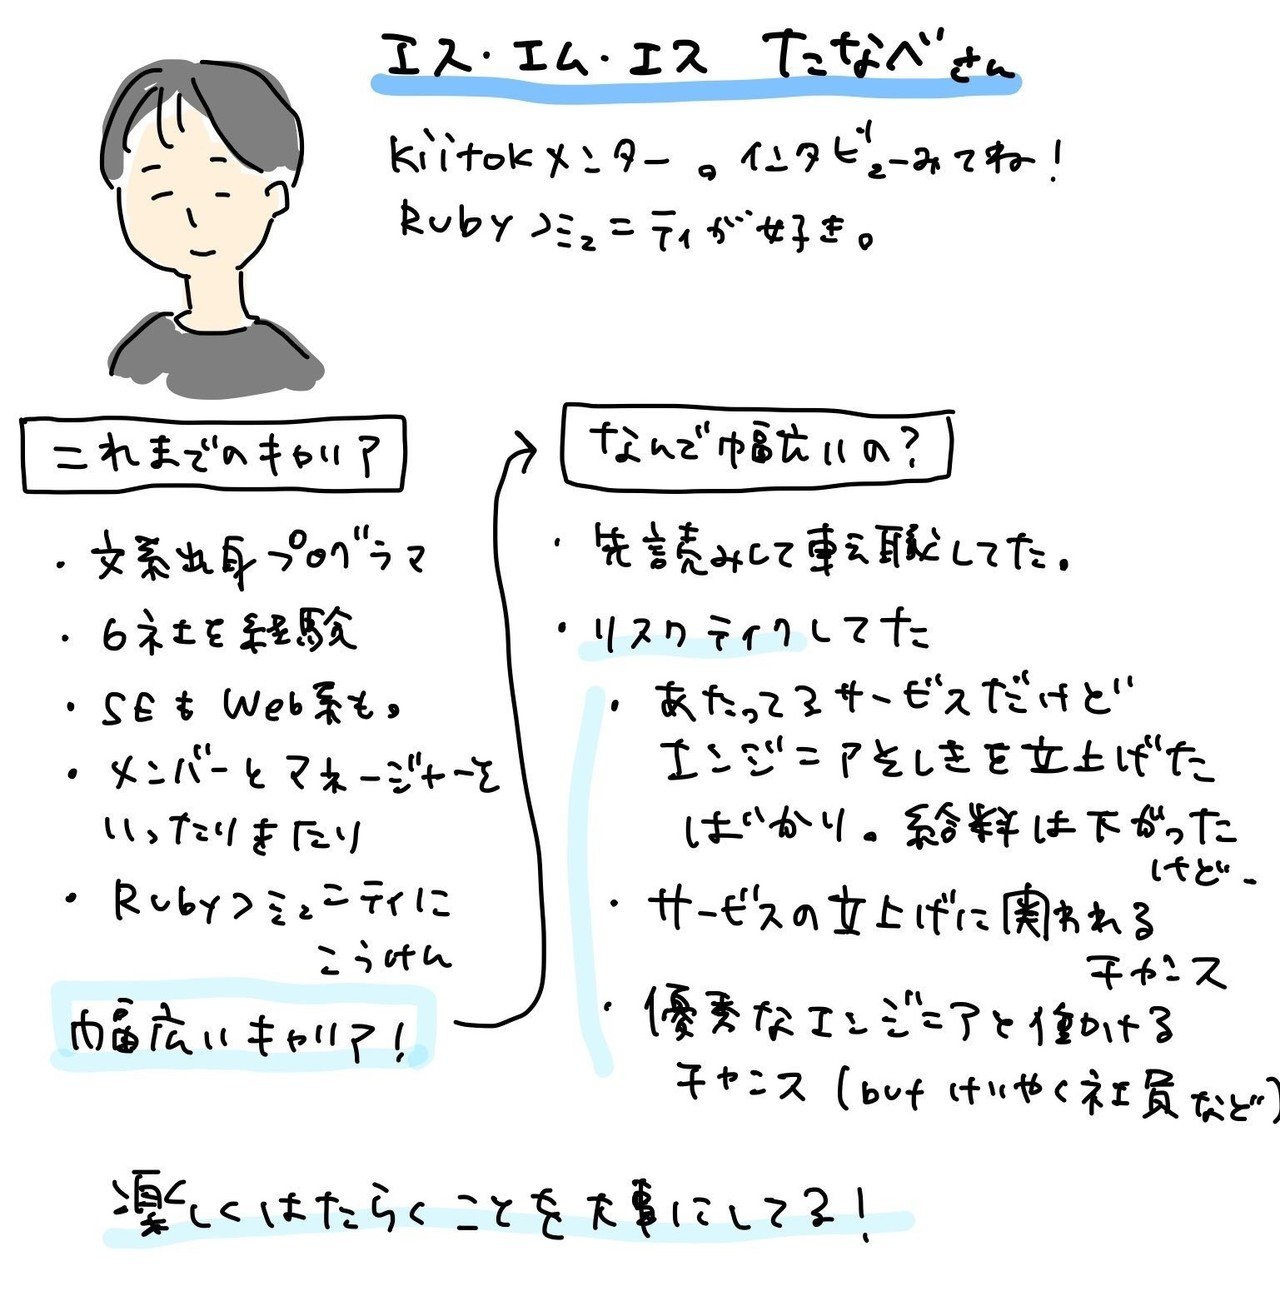 エス・エム・エス たなべさん
Kiitokメンター。インタビューみてね!
Rubyコミュニティが好き。
これまでのキャリア
・文系出身プログラマ
・6社を経験
・SEもWeb系も。
・メンバーとマネージャーを
いったりきたり
・Rubyコミュニティに
こうけん
幅広いキャリア!
なんで幅広いの?
・先読みして転職してた。
・リスクテイクしてた
・あたってるサービスだけど
エンジニアそしきを立上げた
ばかり。給料は下がった
けど-
・サービスの立上げに関われる
チャンス
・優秀なエンジニアと働ける
チャンス(butけいやく社員など)
楽しくはたらくことを大事にしてる!